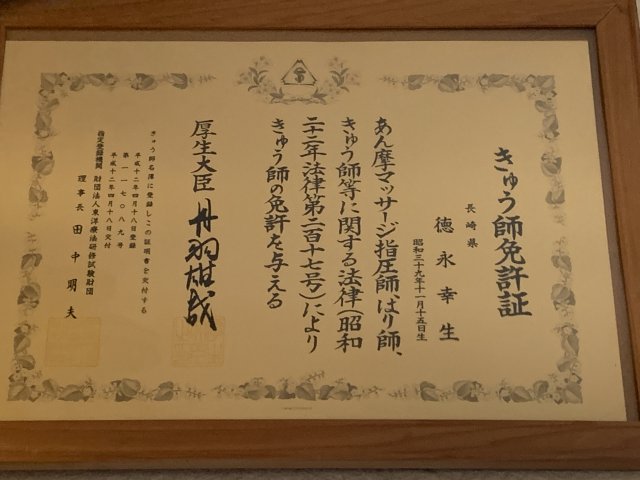 きゅう師免許証
長崎県
徳永幸生
昭和三十九年十一月十五日生
あん摩マッサージ指圧師、はり師、
きゅう師等に関する法律(昭和
二十二年法律第二百十七号)により
きゅう師の免許を与える
厚生大臣 丹羽雄哉
きゅう師名簿に登録しこの証明書を交付する
平成十二年四月十八日登録
第一一七〇八九号
平成十二年四月十八日交付
指定登録機関 財団法人東洋療法研修試験財団
理事長 田中明夫